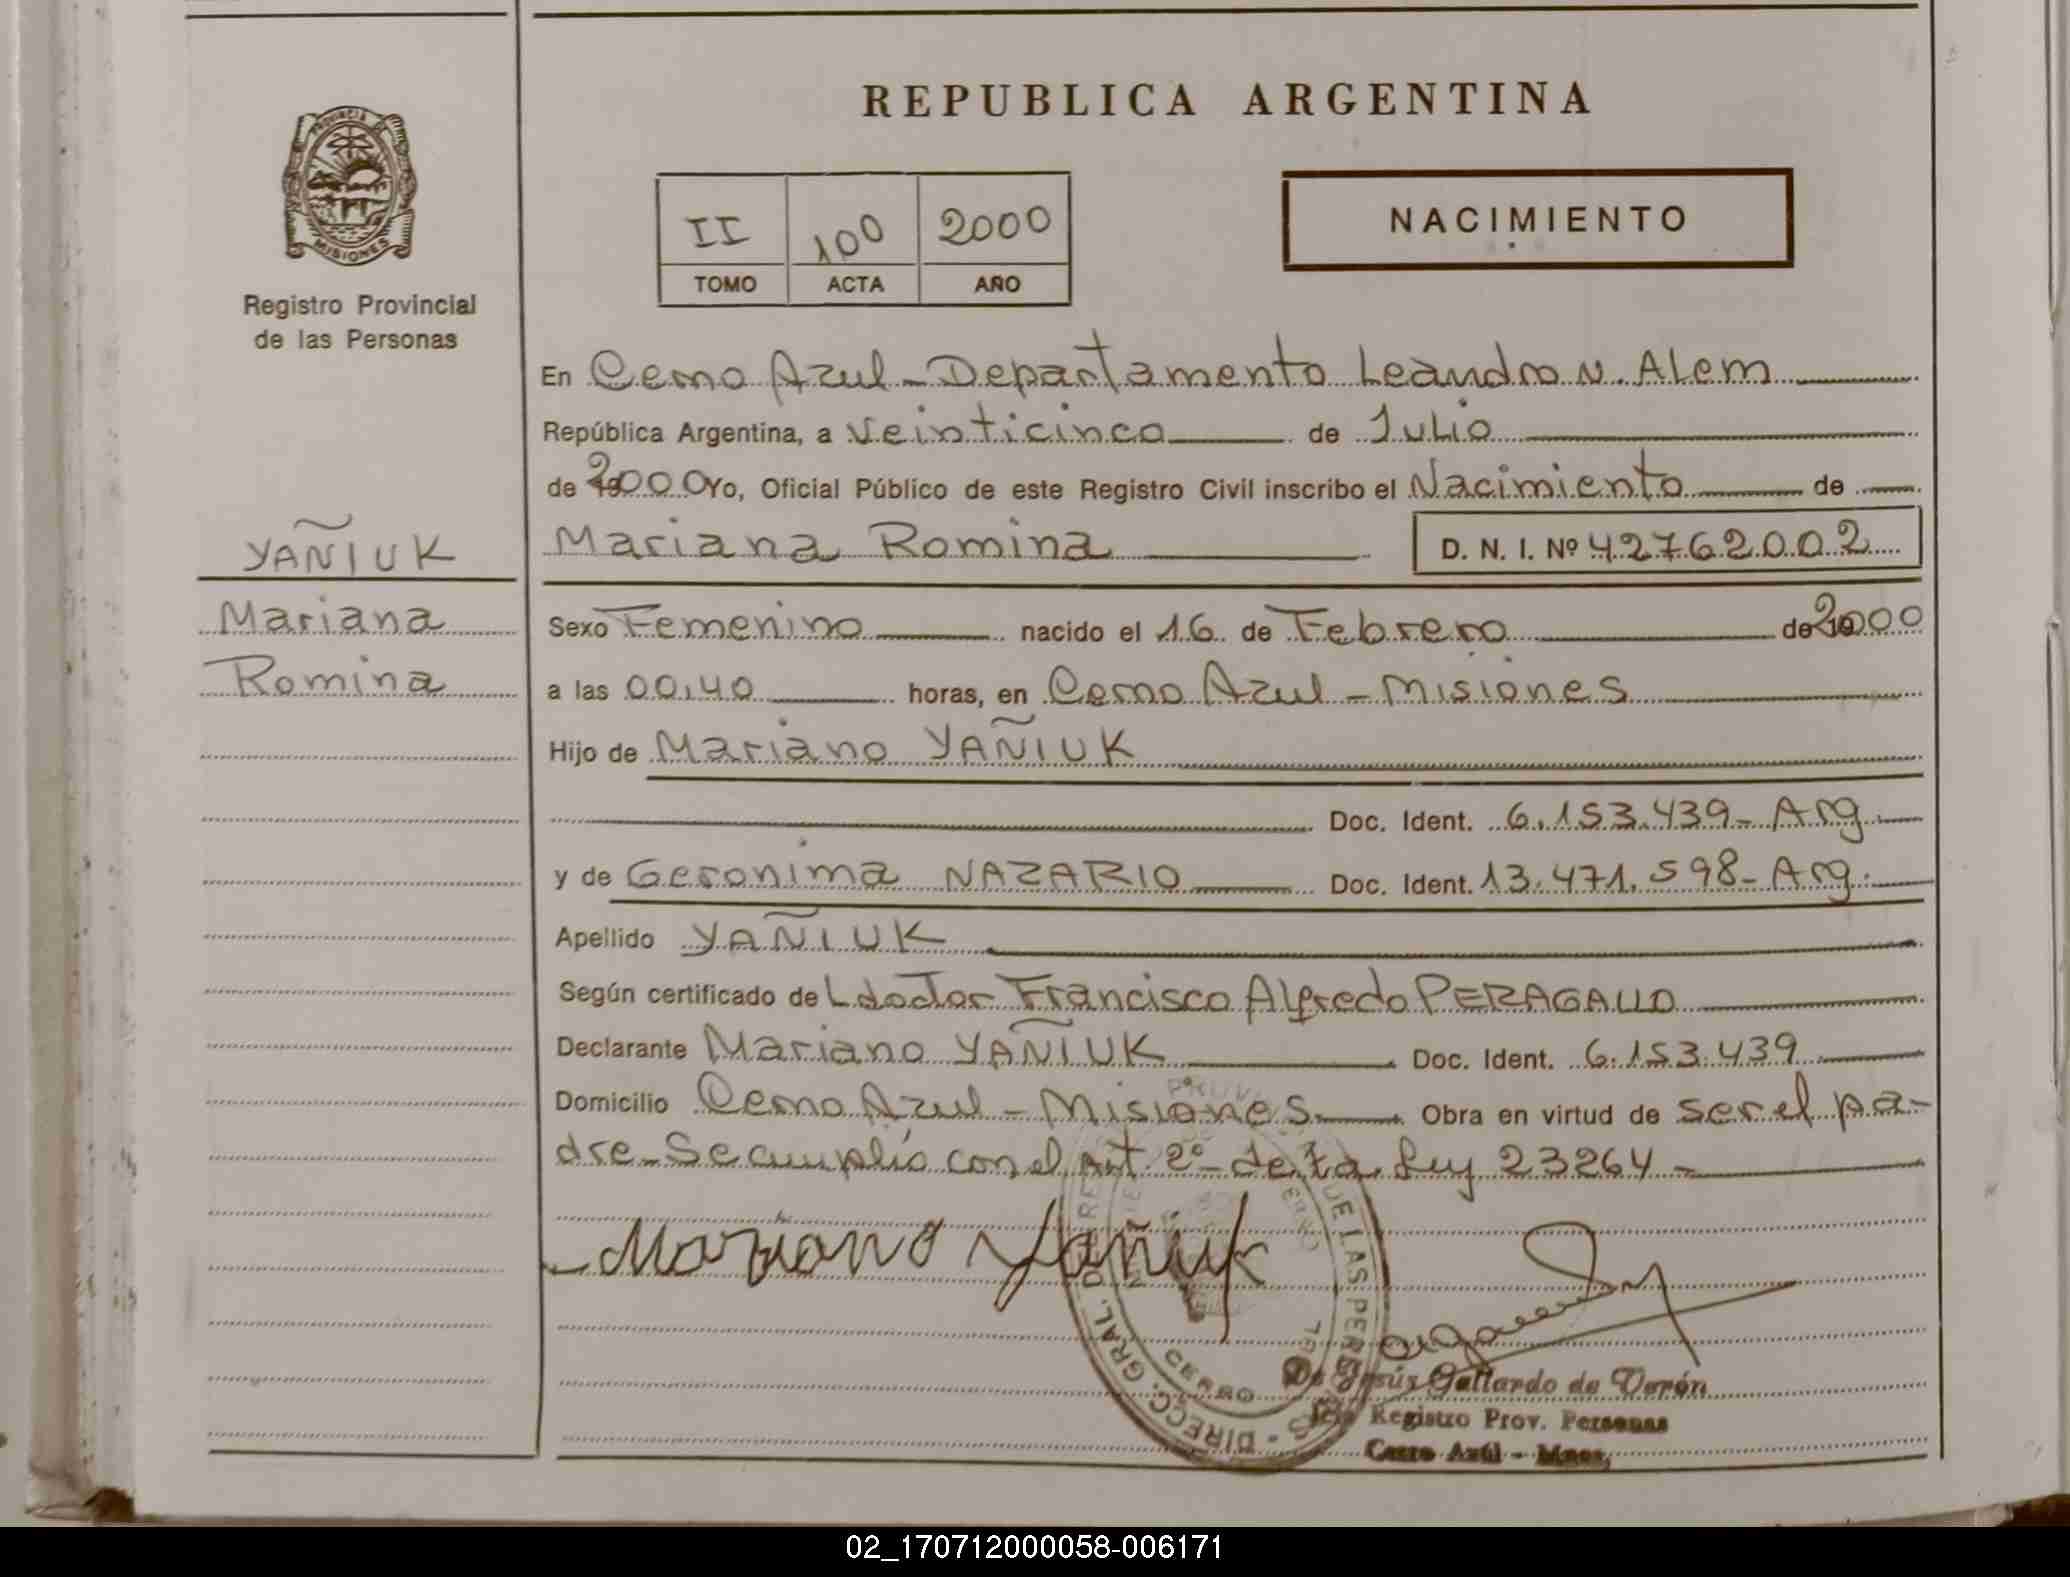 PROVINCIA DE
MISIONES
Registro Provincial
de las Personas
YAÑIUK
Mariana
Romina
REPUBLICA ARGENTINA
II 100 2000
TOMO ACTA AÑO
NACIMIENTO
En Cerro Azul - Departamento Leandro N. Alem
República Argentina, a veinticinco de Julio
de 2000 Yo, Oficial Público de este Registro Civil inscribo el Nacimiento de
Mariana Romina D. N. I. Nº 42762002
Sexo Femenino nacido el 16 de Febrero de 2000
a las 00,40 horas, en Cerro Azul - Misiones
Hijo de Mariano YAÑIUK
Doc. Ident. 6.153.439- Arg.
y de Geronima NAZARIO Doc. Ident. 13.471.598- Arg.
Apellido YAÑIUK
Según certificado del doctor Francisco Alfredo PERAGALLO
Declarante Mariano YAÑIUK Doc. Ident. 6.153.439
Domicilio Cerro Azul - Misiones Obra en virtud de ser el pa-
dre- Se cumplió con el Art. 2º- de la Ley 23264 -
Mariano Yañuk
DIRECC. GRAL. DE LAS PERS
CERRO
Jesús Gallardo de Verón
Jefe Registro Prov. Personas
Cerro Azúl - Mnes.
02_170712000058-006171